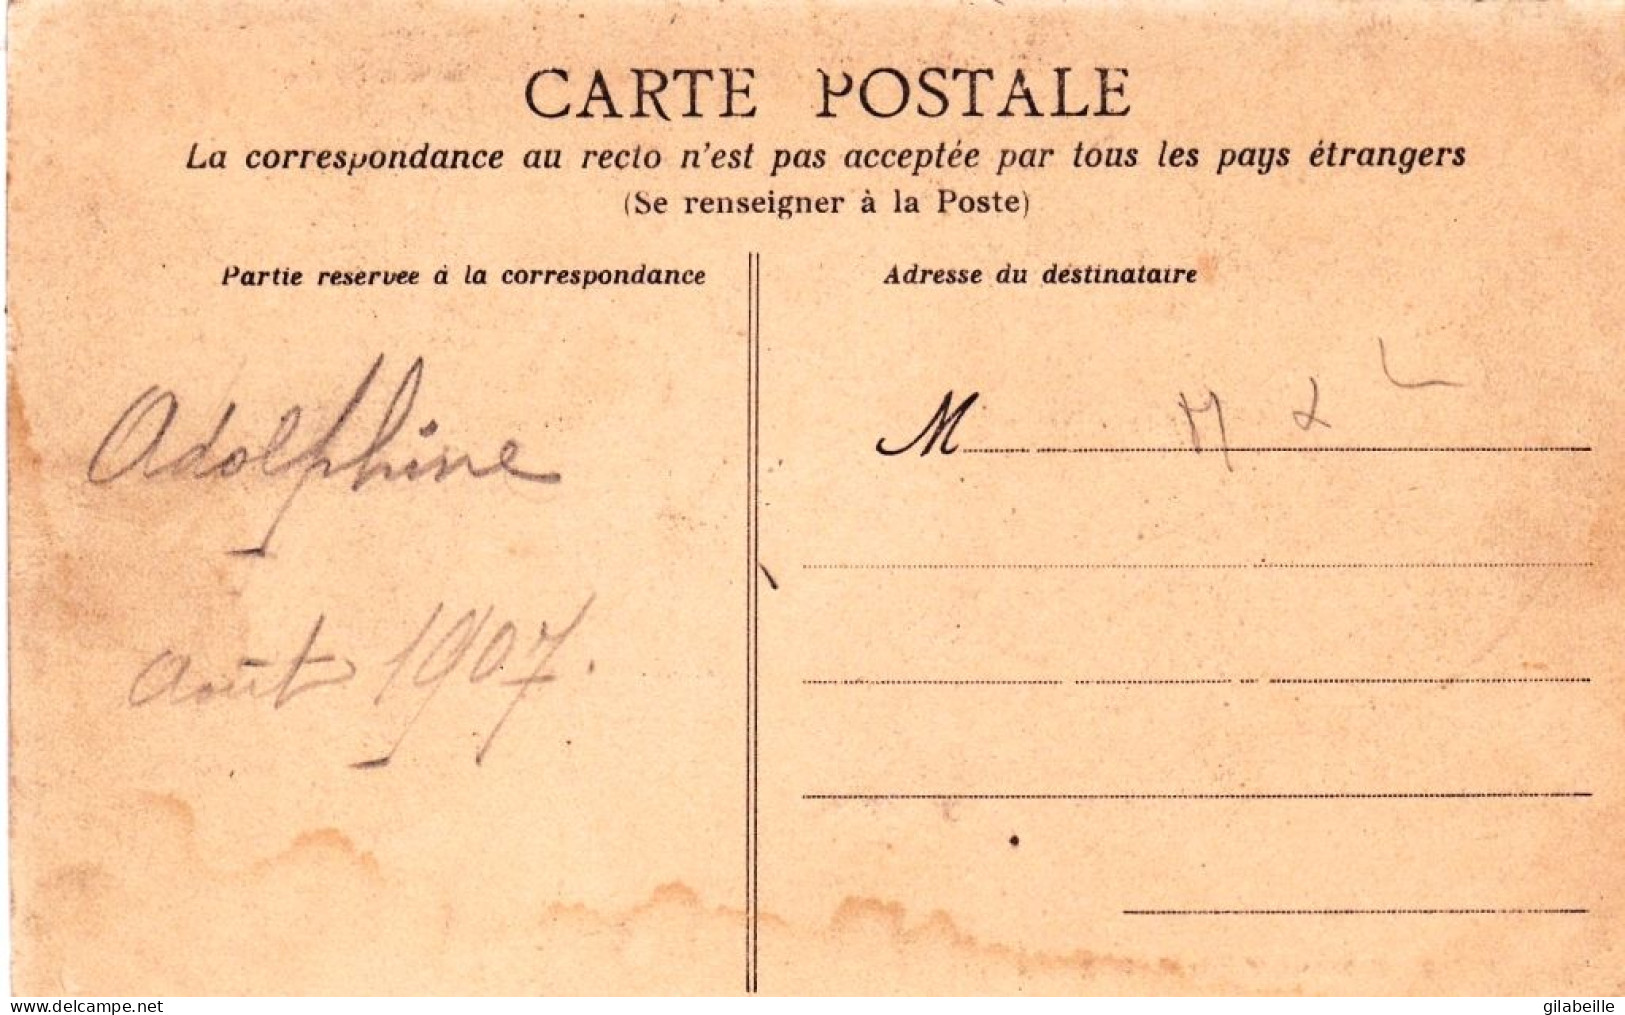 CARTE POSTALE
La correspondance au recto n'est pas acceptée par tous les pays étrangers
(Se renseigner à la Poste)
Partie réservée à la correspondance
Adolphine
Août 1907.
Adresse du destinataire
M
delcampe.net
gilabeille